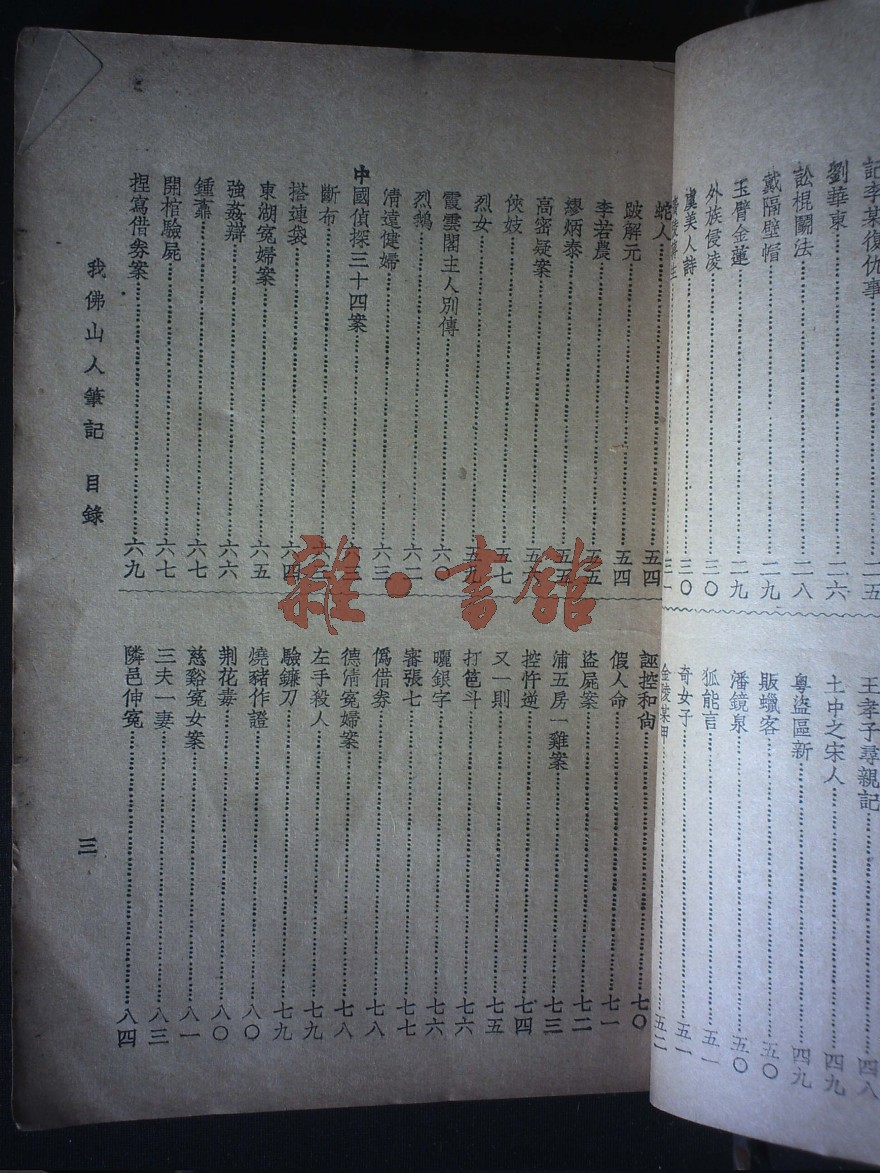 記李某復仇事 二五
劉華東 二六
訟棍鬭法 二八
戴隔壁帽 二九
玉臂金蓮 二九
外族侵凌 三〇
虞美人詩 三〇
王孝子尋親記 四八
土中之宋人 四九
粵盜區新 四九
販蠟客 五〇
潘鏡泉 五〇
狐能言 五一
奇女子 五一
金陵某甲 五二
蛇人 五四
跛解元 五四
李若農 五五
繆炳泰 五五
高密疑案
俠妓 五七
烈女 五九
霞雲閣主人別傳 六〇
烈鵝
清遠健婦 六三
中國偵探三十四案
斷布
搭連袋 六四
東湖冤婦案 六五
強姦辯 六六
鍾鼒 六七
開棺驗屍 六七
捏寫借券案 六九
誣控和尙 七〇
假人命 七一
盜屍案 七二
浦五房一雞案 七三
控忤逆 七四
又一則 七五
打笆斗 七六
曬銀字 七六
審張七 七七
僞借券 七八
德淸冤婦案 七八
左手殺人 七九
驗鐮刀 七九
燒豬作證 八〇
荆花毒 八〇
慈谿冤女案 八一
三夫一妻 八三
隣邑伸冤 八四
我佛山人筆記 目錄
三
雜·書館